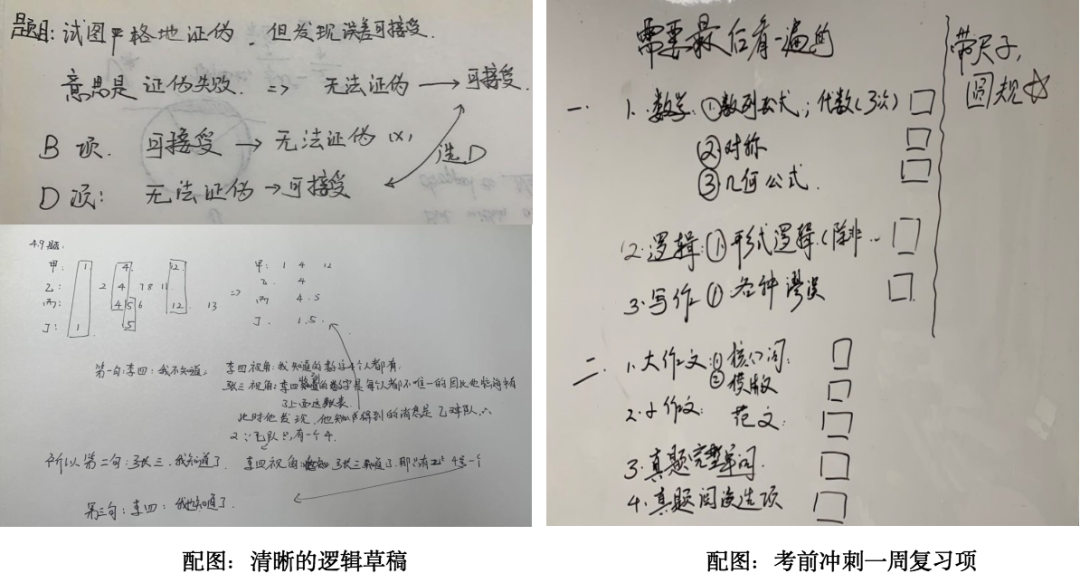 题目: 试图严格地证伪, 但发现误差可接受.
意思是 证伪失败. => 无法证伪 → 可接受.
B 项. 可接受 → 无法证伪 (x)
选D
D 项: 无法证伪 → 可接受
49题.
甲: 1 4 12
乙: 2 4 7 8 11
丙: 4 5 6 12 13
丁: 1 5
=>
甲: 1 4 12
乙 4
丙 4.5
丁 1.5
第一句: 李四: 我不知道.
李四视角: 我知道的数字每个人都有.
张三视角: 李四知道的数字是每个人都不唯一的因此
此时他发现, 他知道得到的消息是乙球队,
2 ∵ 乙队只有一个4.
所以第二句: 张三, 我知道了. 李四视角 张三知道了. 那只有 4是一个
第三句: 李四: 我也知道了.
配图：清晰的逻辑草稿
需要最后看一遍的
带尺子,
圆规☆
一. 1. 数学. ①数列公式; 代数(3次) □
②对称 □
③几何公式. □
2. 逻辑: ①形式逻辑.(除非.. □
3. 写作 ① 各种谬误 □
二. 1. 大作文: ① 核心词: □
② 模版 □
2. 小作文: 范文: □
3. 真题完型单词. □
4. 真题阅读选项 □
配图：考前冲刺一周复习项